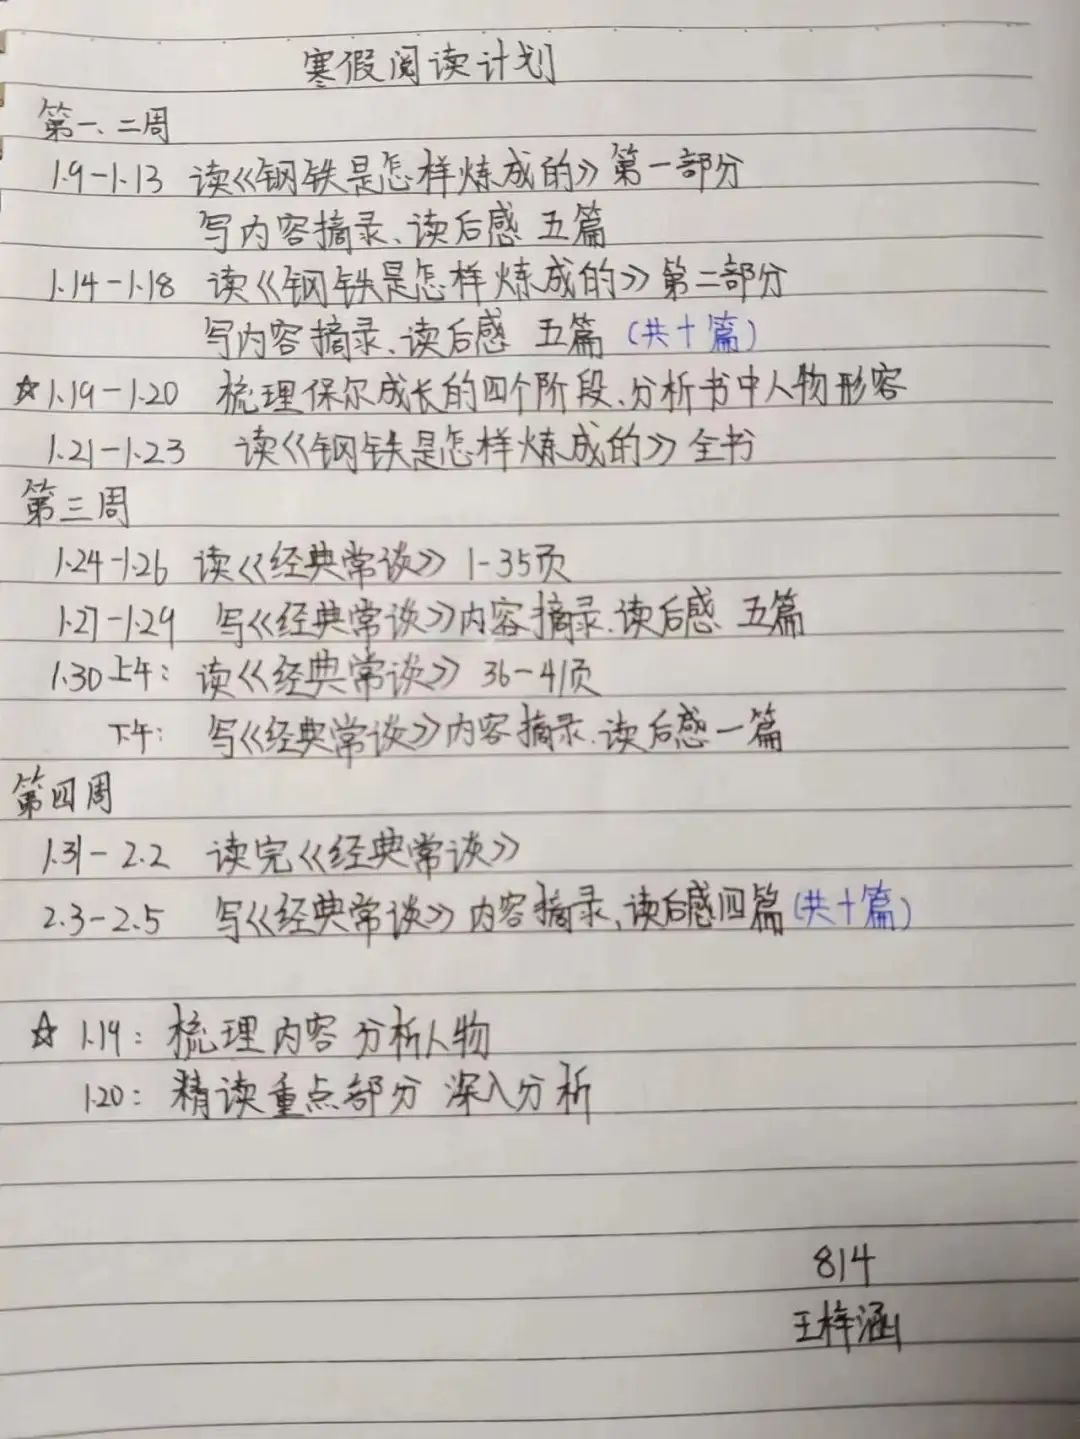 寒假阅读计划
第一、二周
1.9-1.13 读《钢铁是怎样炼成的》第一部分
写内容摘录、读后感 五篇
1.14-1.18 读《钢铁是怎样炼成的》第二部分
写内容摘录、读后感 五篇(共十篇)
☆1.19-1.20 梳理保尔成长的四个阶段、分析书中人物形容
1.21-1.23 读《钢铁是怎样炼成的》全书
第三周
1.24-1.26 读《经典常谈》1-35页
1.27-1.29 写《经典常谈》内容摘录、读后感 五篇
1.30上午: 读《经典常谈》36-41页
下午: 写《经典常谈》内容摘录、读后感一篇
第四周
1.31-2.2 读完《经典常谈》
2.3-2.5 写《经典常谈》内容摘录、读后感四篇(共十篇)
☆ 1.19: 梳理内容 分析人物
1.20: 精读重点部分 深入分析
814
王梓涵